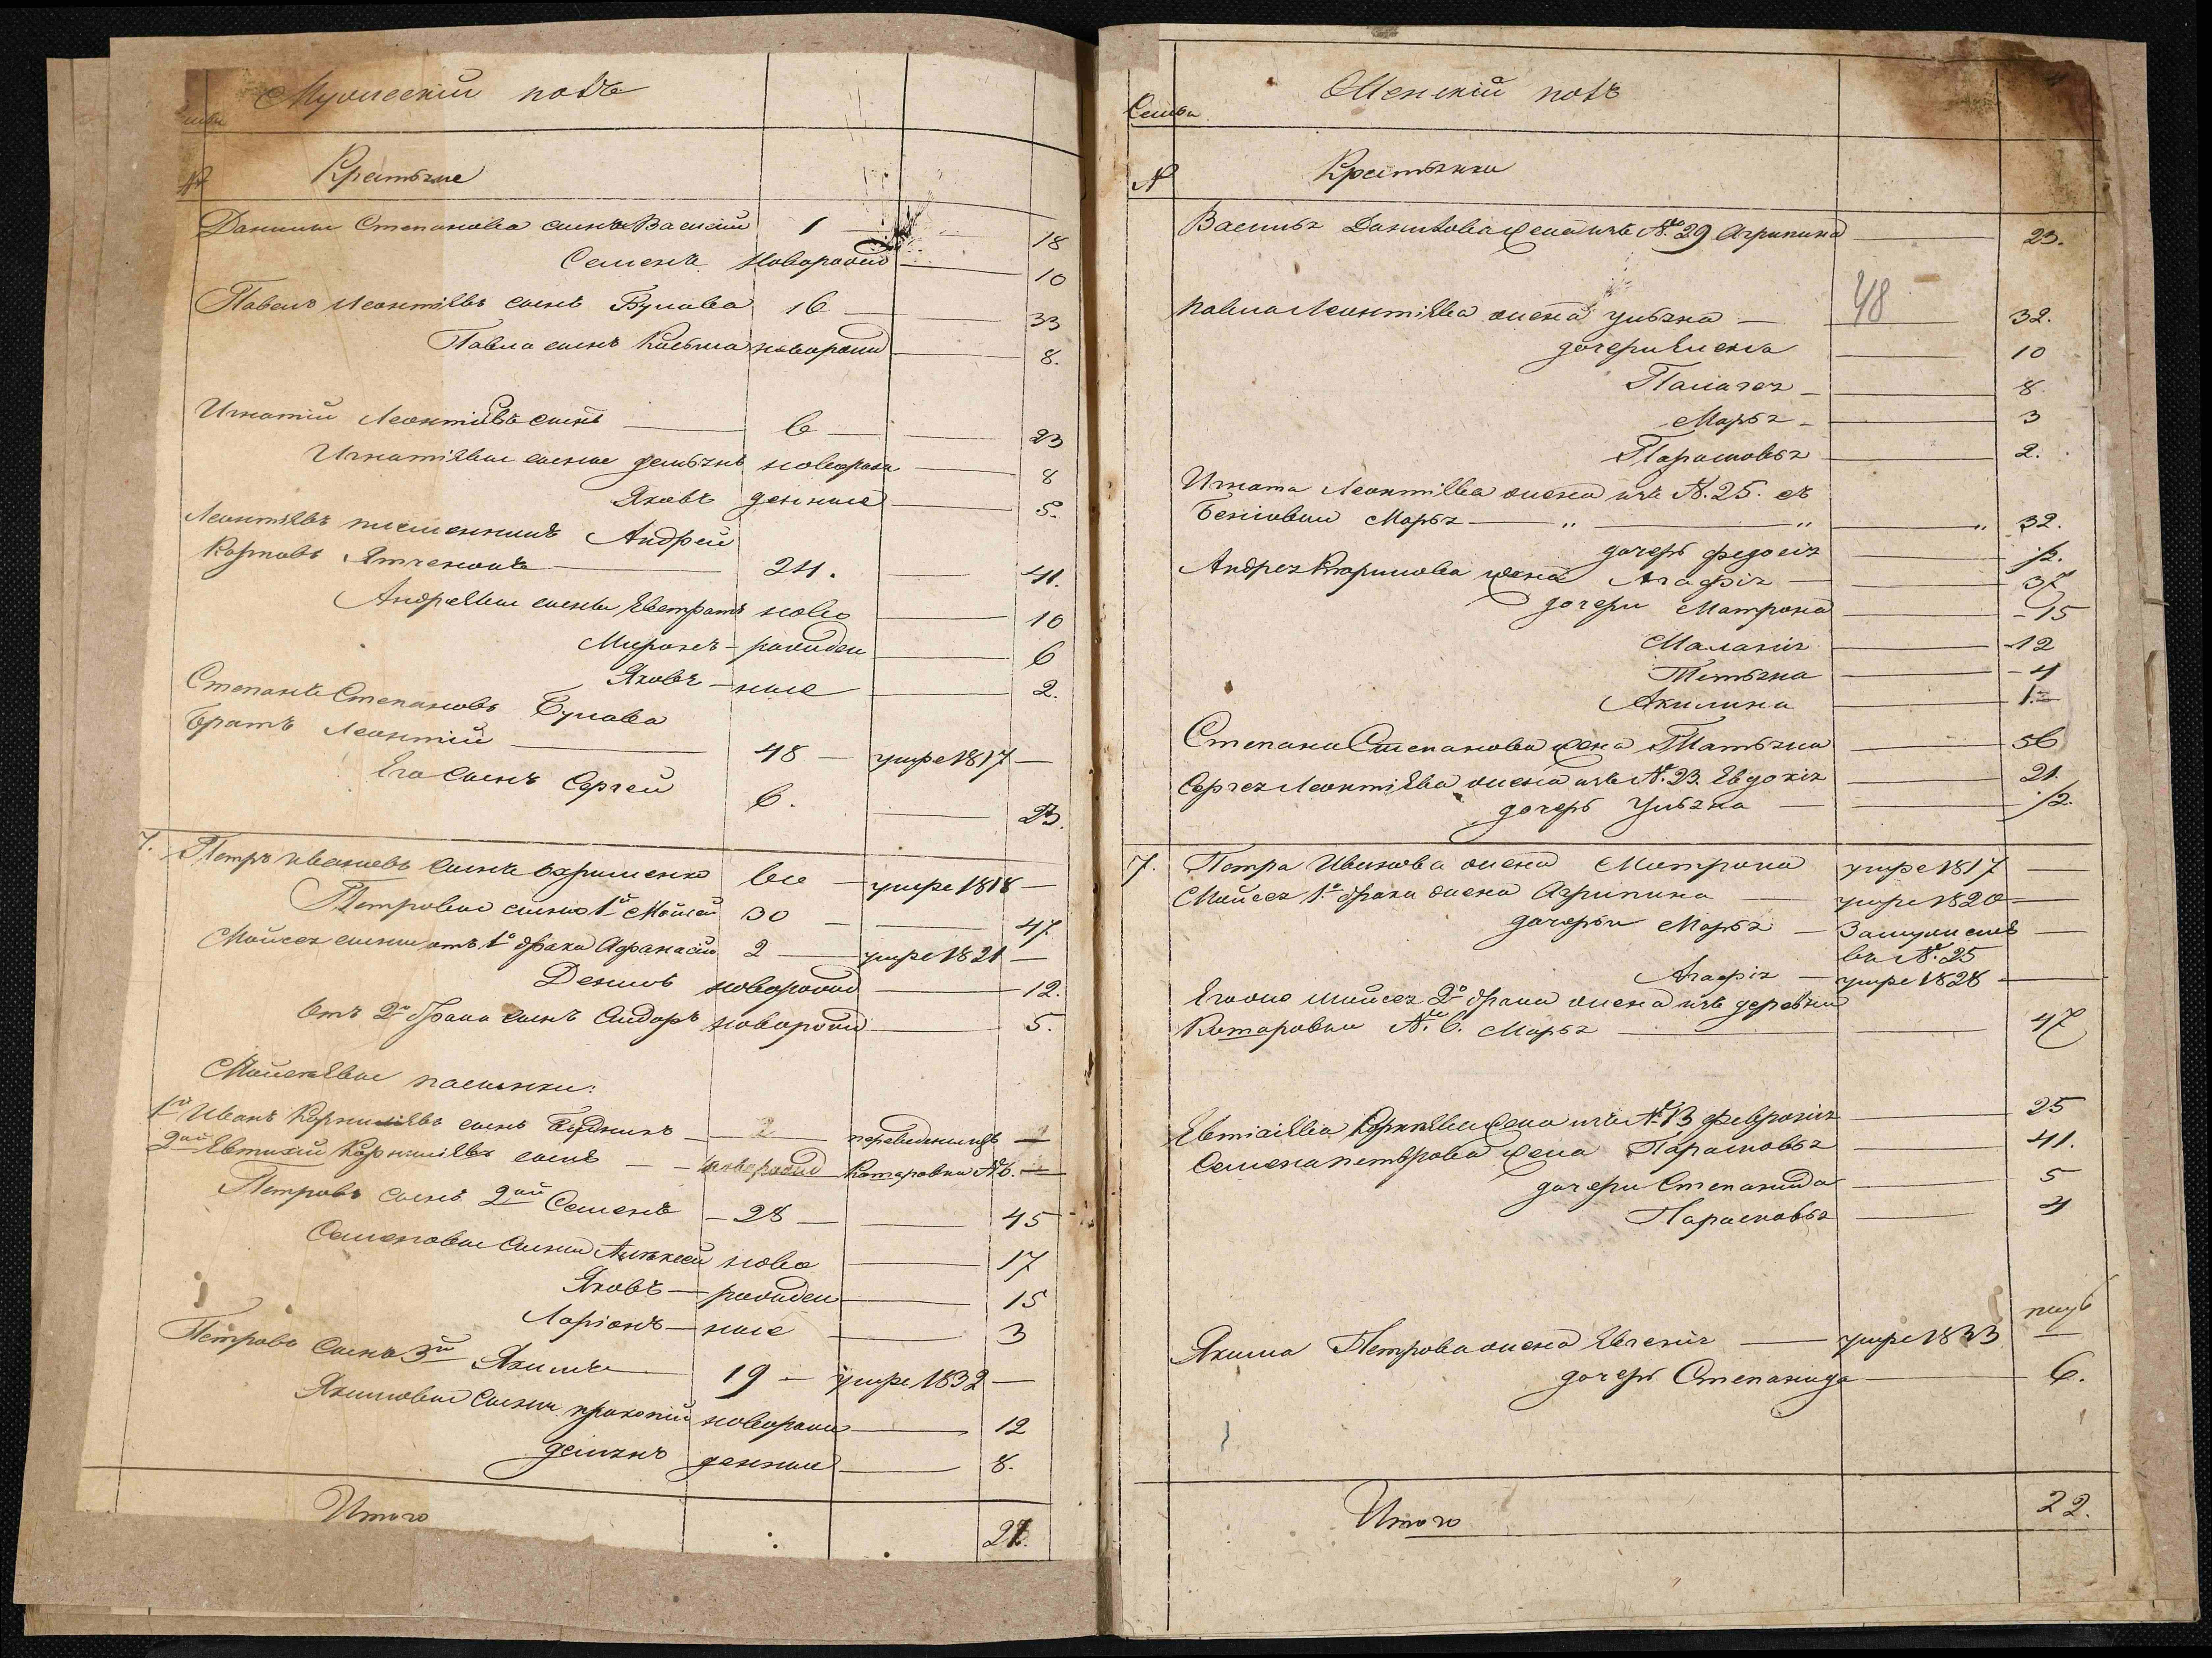 Мужескій полъ
№
Крестьяне
Данилы Степанова сынъ Василій 1 — 18
Семенъ новорожд — 10
Павелъ Леонтіевъ сынъ Булава 16 — 33
Павла сынъ Касьма новорожд — 8.
Игнатій Леонтіевъ сынъ — 6 — 23
Игнатіевы сыны Демьянъ новорож — 8
Яковъ денные — 5.
Леонтіевъ племенникъ Андрей
24. — 41.
Андреевы сыны Евстратъ ново — 10
Миронъ — рожден — 6
Яковъ — ные — 2.
Степанъ Степановъ Булава
Братъ Леонтій — 48 — умре 1817 —
Его сынъ Сергей 6. — 23.
7. Петръ Ивановъ сынъ Охрименко 60 — умре 1818 —
Петровы сыны 1й Мойсей 30 — 47
Мойсея сыны отъ 1о брака Афанасій 2 — умре 1821 —
Денисъ новорожд — 12.
Отъ 2о брака сынъ Сидоръ новорожд — 5.
Мойсеевы пасынки:
1й Иванъ Корниліевъ сынъ 2 — переведены въ —
2ой Евтихій Корниліевъ сынъ — новорожд Комаровки № 6. —
Петровъ сынъ 2ой Семенъ — 28 — 45
Семеновы сыны Алексей ново — 17
Яковъ — рожден — 15
Ларіонъ — ные — 3
Петровъ сынъ 3й Якимъ — 19 — умре 1832 —
Якимовы сыны Прокопій новорож — 12
Демянъ денные — 8.
Итого 21.
Женскій полъ
Семьи
№
Крестьянки
Василья Данилова жена изъ № 29 Агрипина — 23.
48
Павла Леонтіева жена Ульяна — 32.
дочери Елена — 10
Палагея — 8
Марья — 3
Парасковья — 2.
Игната Леонтіева жена изъ № 25. съ
Марья — " — " — " 32.
дочерь Федосія — ½.
Андрея Карпова жена Агафія — 37
дочери Матрона — 15
Маланія — 12
Татьяна — 4
Акилина — 1.
Степана Степанова жена Татьяна — 56
Сергея Леонтіева жена изъ № 23. Евдокія — 21.
дочерь Ульяна — ½.
7. Петра Иванова жена Матрона умре 1817 —
Мойсея 1о брака жена Агрипина — умре 1820 —
дочерьи Марья — Замужемъ —
въ № 25
Агафія — умре 1828 —
Егоже Мойсея 2о брака жена изъ деревни
Комаровки № 6. Марья — 47
Евтихіева Корниліева жена изъ № 13 Февронія — 25
Семена Петрова жена Парасковья — 41.
дочери Степанида — 5
Парасковья — 4
Якима Петрова жена Евгенія — умре 1833 —
дочерь Степанида — 6.
Итого 22.